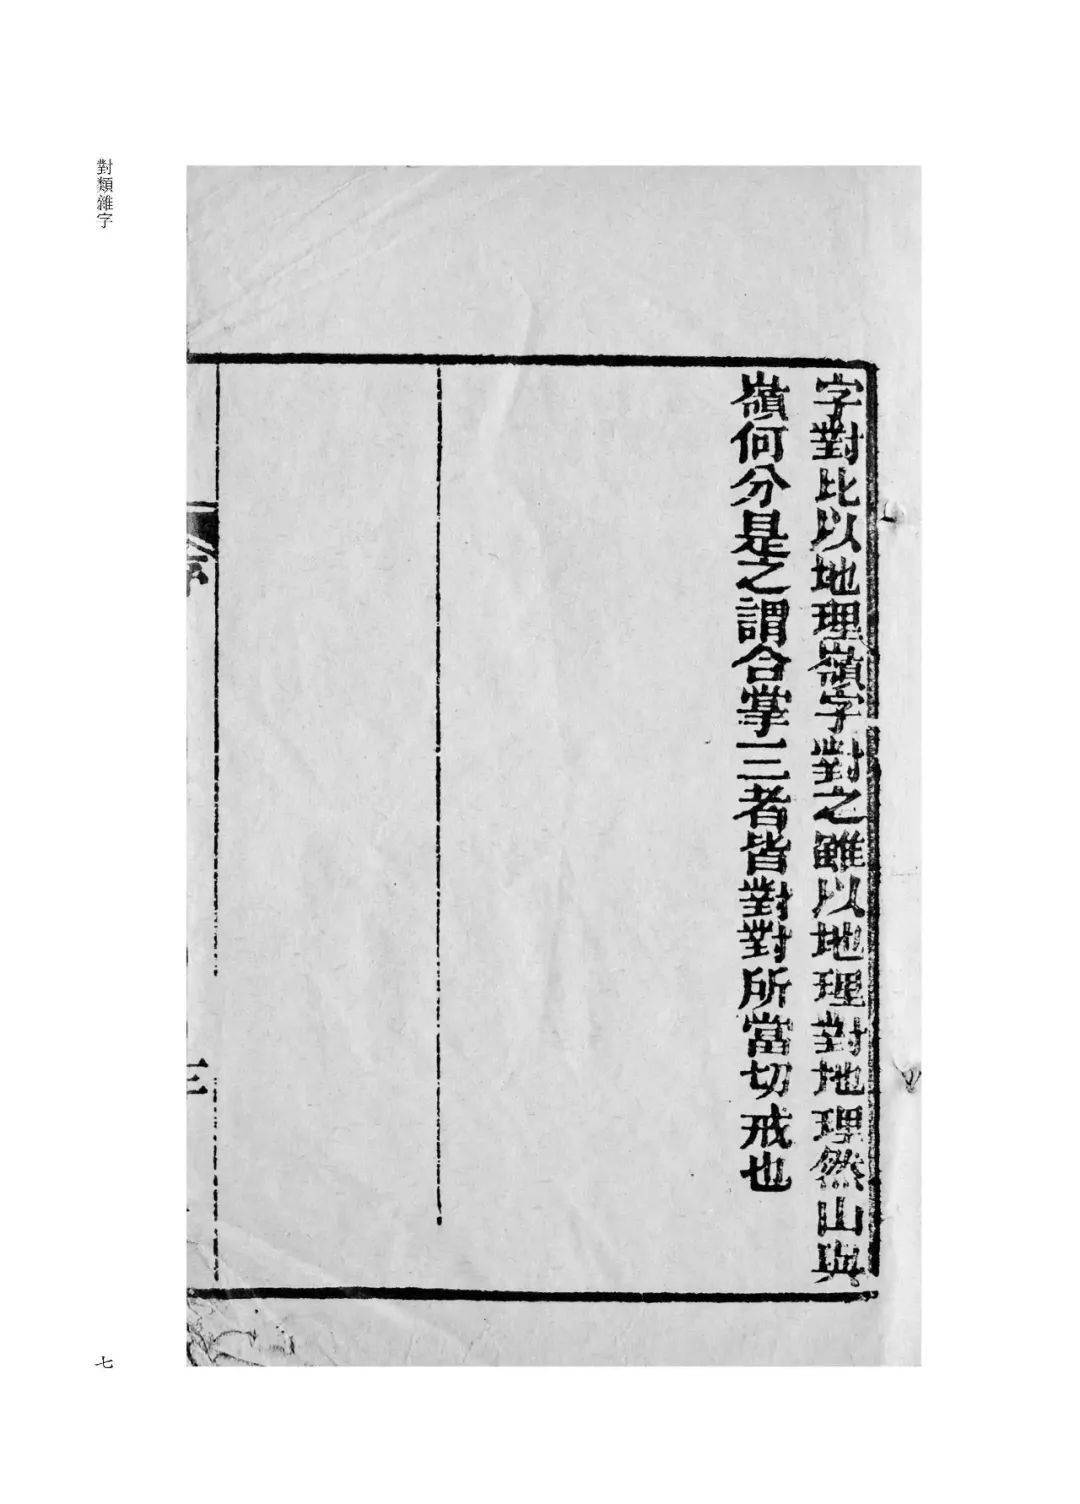 字對比以地理嶺字對之雖以地理對地理然山與
嶺何分是之謂合掌三者皆對對所當切戒也
序
三
對類雜字
七